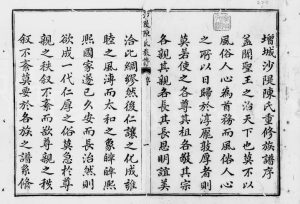 增城沙隄陳氏重修族譜序
蓋聞聖王之治天下也莫不以
風俗人心為首務而風俗人心
之所以日歸於淳敦厚者則
莫若使之各尊其祖各敬其宗
各親其親各長其長恩明誼美
沙隄陳氏族譜 序 一
洽比綢繆然後仁讓之化成雍
睦之風溥而太和之象皞皞熙
熙國家遂已久安而長治然則
欲成一代仁厚之俗莫急於尊
親之秩叙不紊而欲尊親之秩
叙不紊莫要於各族之譜系脩